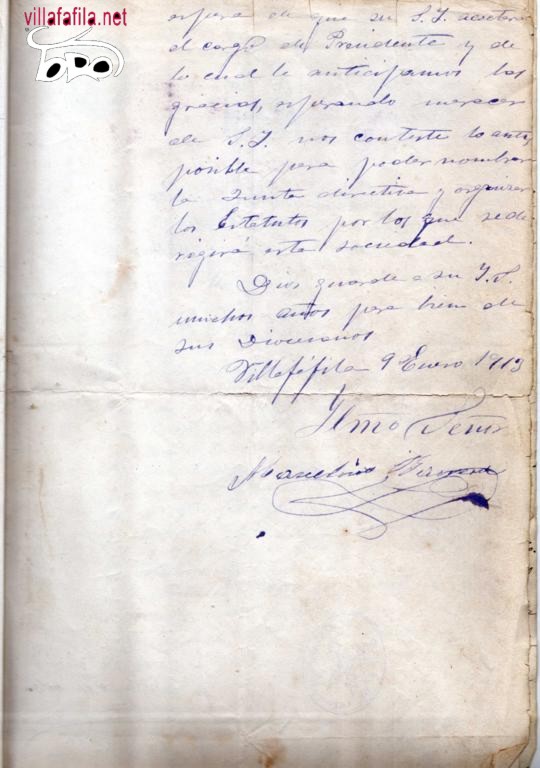 villafafila.net
espera de que su S.I. aceptara
el cargo de Presidente y de
lo cual le anticipamos las
gracias, esperando merecer
de S.I. nos conteste lo antes
posible para poder nombrar
la Junta directiva y organizar
los Estatutos por los que se de
regirá esta sociedad.
Dios guarde a su I.S.
muchos años para bien de
sus Diocesanos
Villafáfila 9 Enero 1913
Ilmo Señor
Marcelino